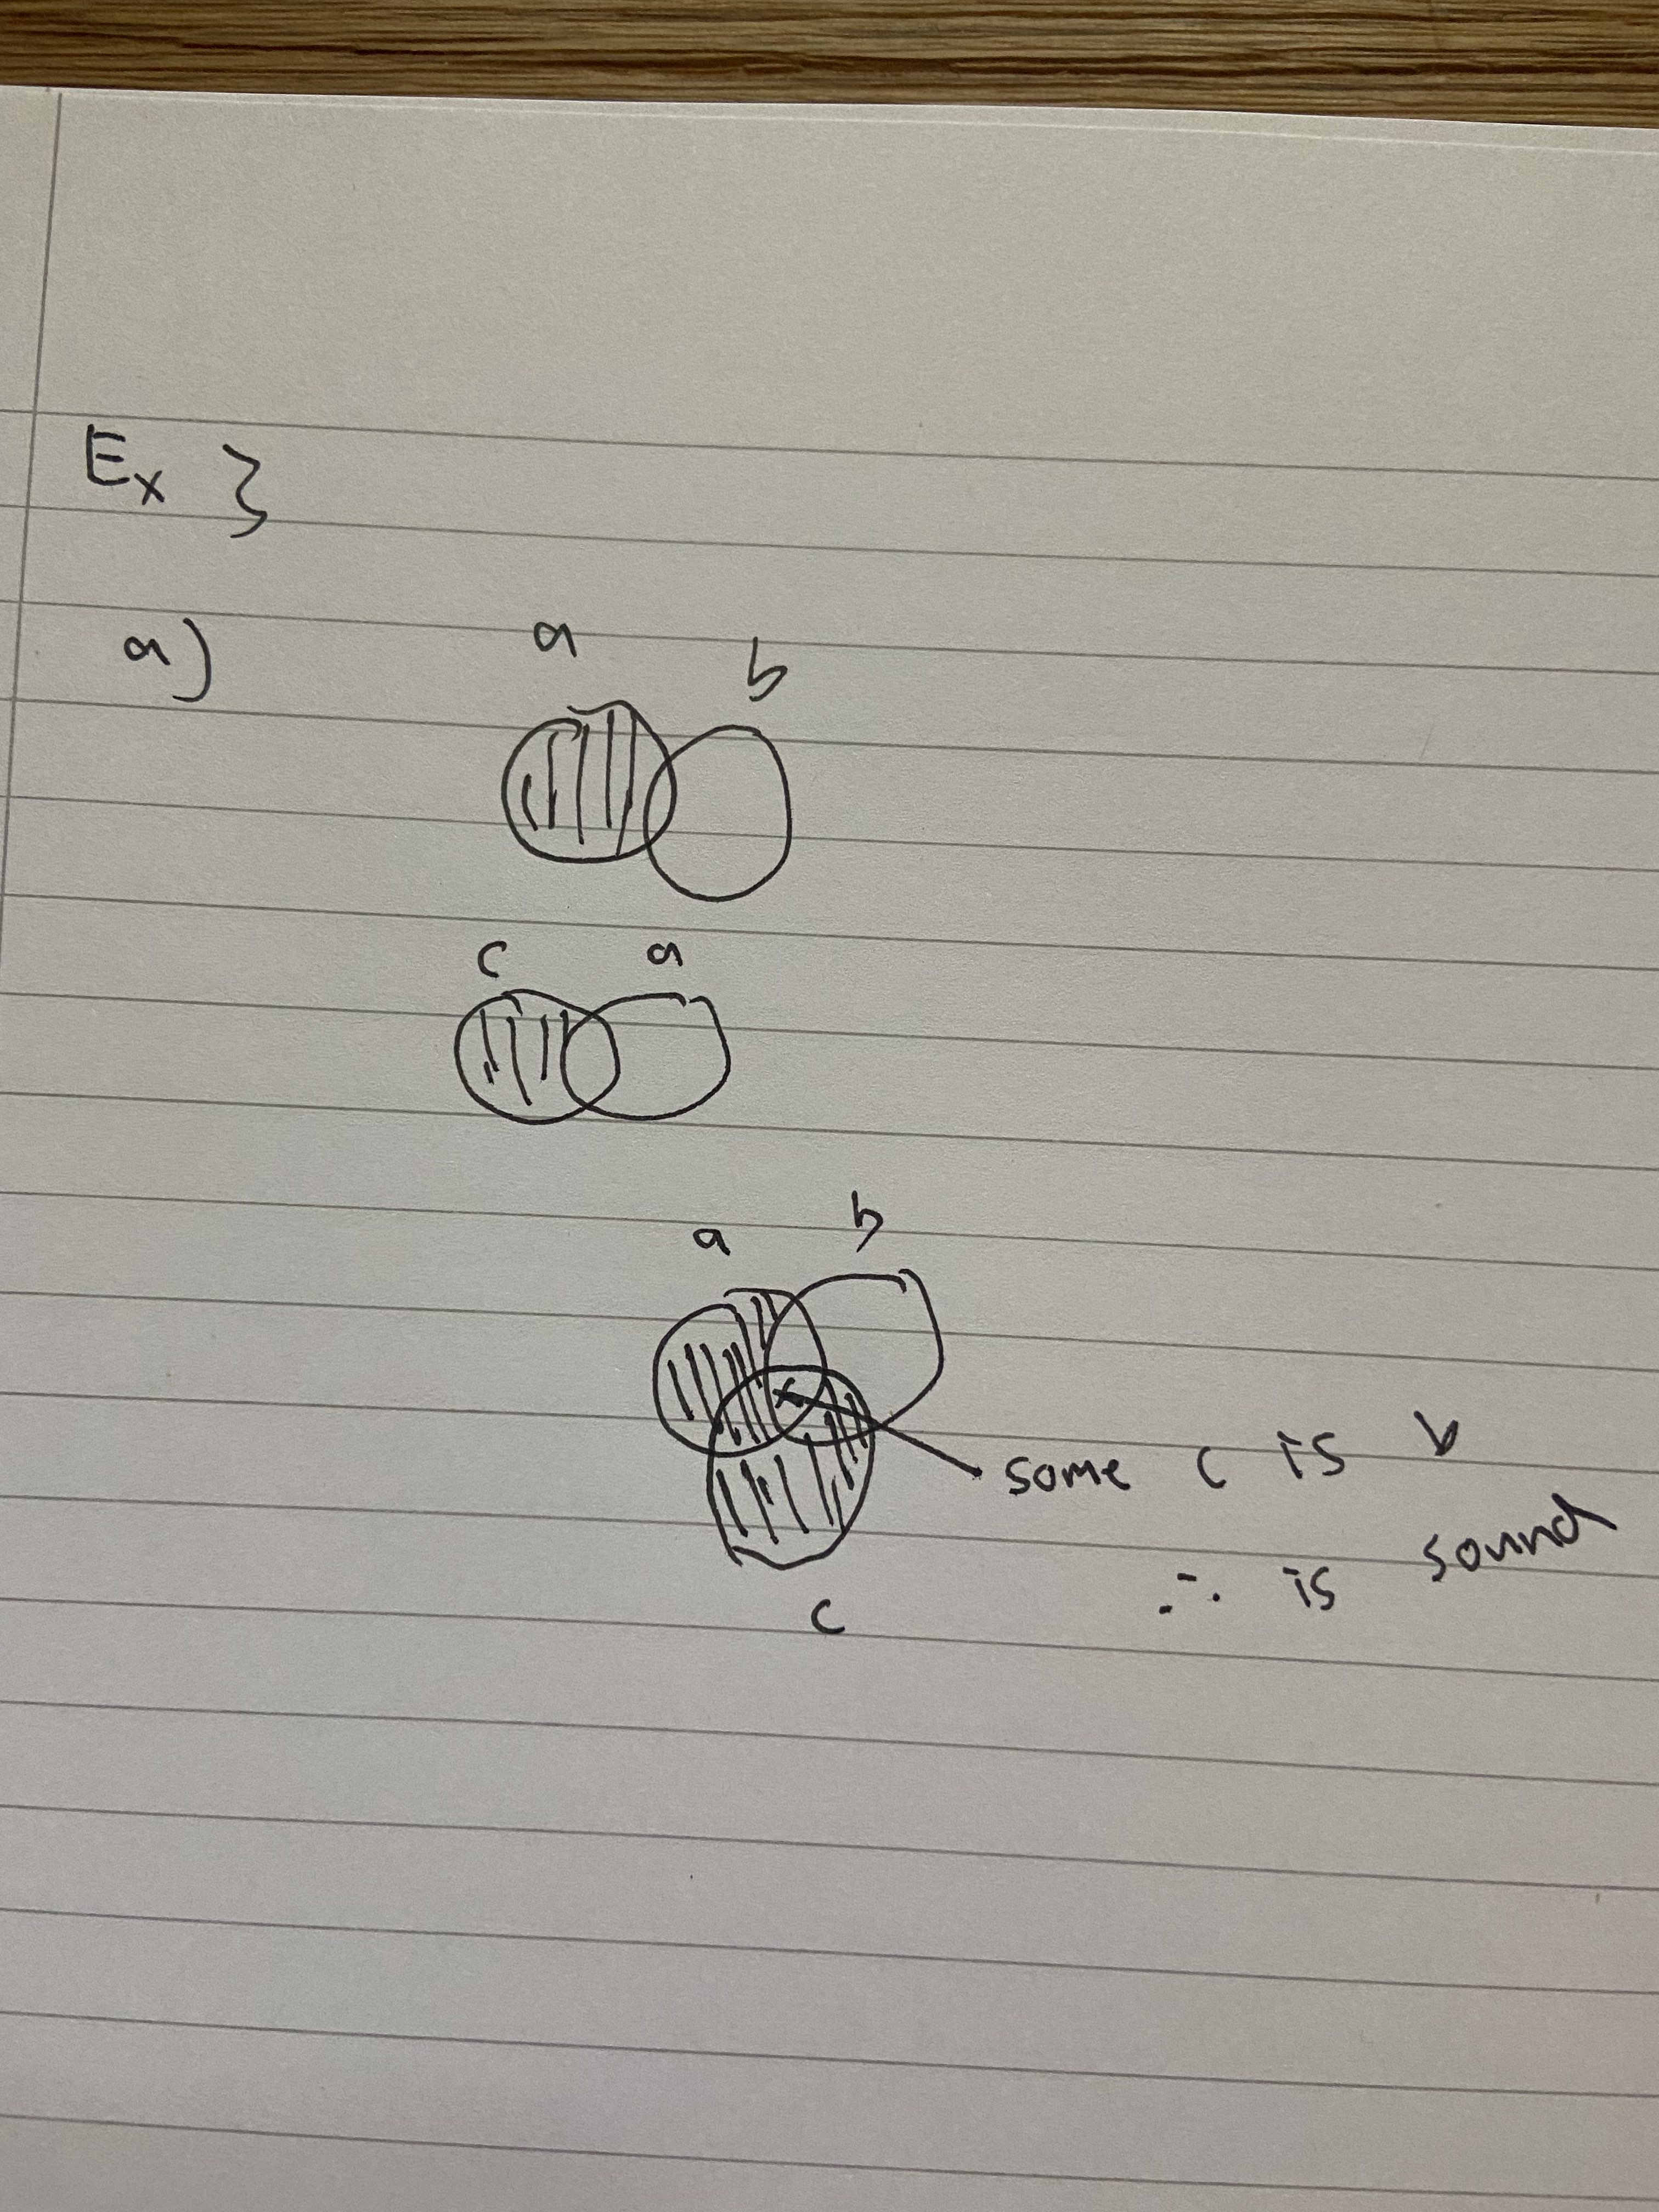 Ex 3
a)
a b
c a
a b
some c is b
∴ is sound
c